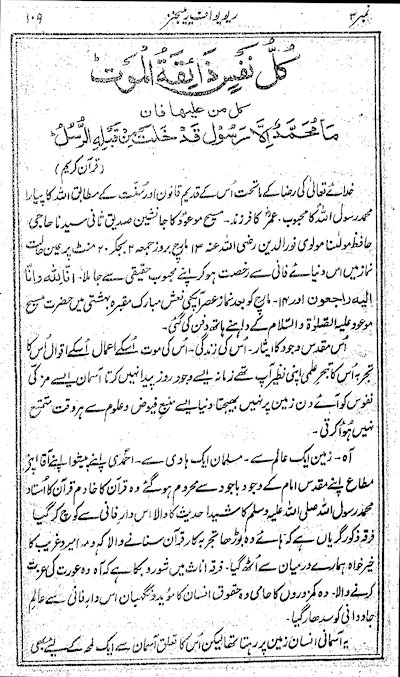 نمبر ۳ ریویو آف ریلیجنز ۱۰۹
كُلُّ نَفْسٍ ذَائِقَةُ الْمَوْتِ
كل من عليها فان
مَا مُحَمَّدٌ اِلَّا رَسُوْلٌ قَدْ خَلَتْ مِنْ قَبْلِهِ الرُّسُلُ
(قرآن کریم)
خدائے تعالیٰ کی رضا کے ماتحت اُس کے قدیم قانون اور سُنّت کے مطابق اللہ کا پیارا
محمد رسول اللہ کا محبوب۔ عمرؓ کا فرزند۔ مسیح موعود کا جانشین صدیق ثانی سیدنا حاجی
حافظ مولٰنا مولوی نورالدین رضی اللہ عنہ ۱۳ مارچ روز جمعہ ۲ بجکر ۲۰ منٹ پر عین حالت
نماز میں اس دنیائے فانی سے رخصت ہو کر اپنے محبوب حقیقی سے جا ملا۔ انا للہ وانا
الیہ راجعون اور ۱۴۔ مارچ کو بعد نماز عصر آپکی نعش مبارک مقبرہ بہشتی میں حضرت مسیح
موعود علیہ الصلوٰۃ والسّلام کے داہنے ہاتھ دفن کی گئی۔
اُس مقدس وجود کا ایثار۔ اُس کی زندگی۔ اُس کی موت اُسکے اعمال اُسکے اقوال اُس کا
تجربہ اُس کا تبحر علمی اپنی نظیر آپ تھے زمانہ ایسے وجود روز پیدا نہیں کرتا آسمان ایسے مزکّی
نفوس کو آئے دن زمین پر نہیں بھیجتا دنیا ایسے منبع فیوض و علوم سے ہر وقت متمتع
نہیں ہُوا کرتی۔
آہ۔ زمین ایک عالم سے۔ مسلمان ایک ہادی سے۔ احمدی اپنے پیشوا اپنے آقا اپنے
مطاع اپنے مقدس امام کے وجود باجود سے محروم ہو گئے وہ قرآن کا خادم قرآن کا اُستاد
محمد رسول اللہ صلی اللہ علیہ وسلم کا شیدا حدیث کا دالا اس دار فانی سے کوچ کر گیا
فرقہ ذکور گریاں ہے کہ ہائے وہ بوڑھا تجربہ کار قرآن سنانے والا کہ و مہ امیر و غریب کا
خیر خواہ ہمارے درمیان سے اُٹھ گیا۔ فرقہ اناث میں شور و بکا ہے کہ آہ وہ عورت کی عزت
کرنے والا۔ وہ کمزوروں کا حامی وہ حقوق انسان کا مؤید و نگہبان اس دار فانی سے عالم
جاودانی کو سدھار گیا۔
یہ آسمانی انسان زمین پر رہتا تھا لیکن اُس کا تعلق آسمان سے ایک لمحہ کے لیئے بھی